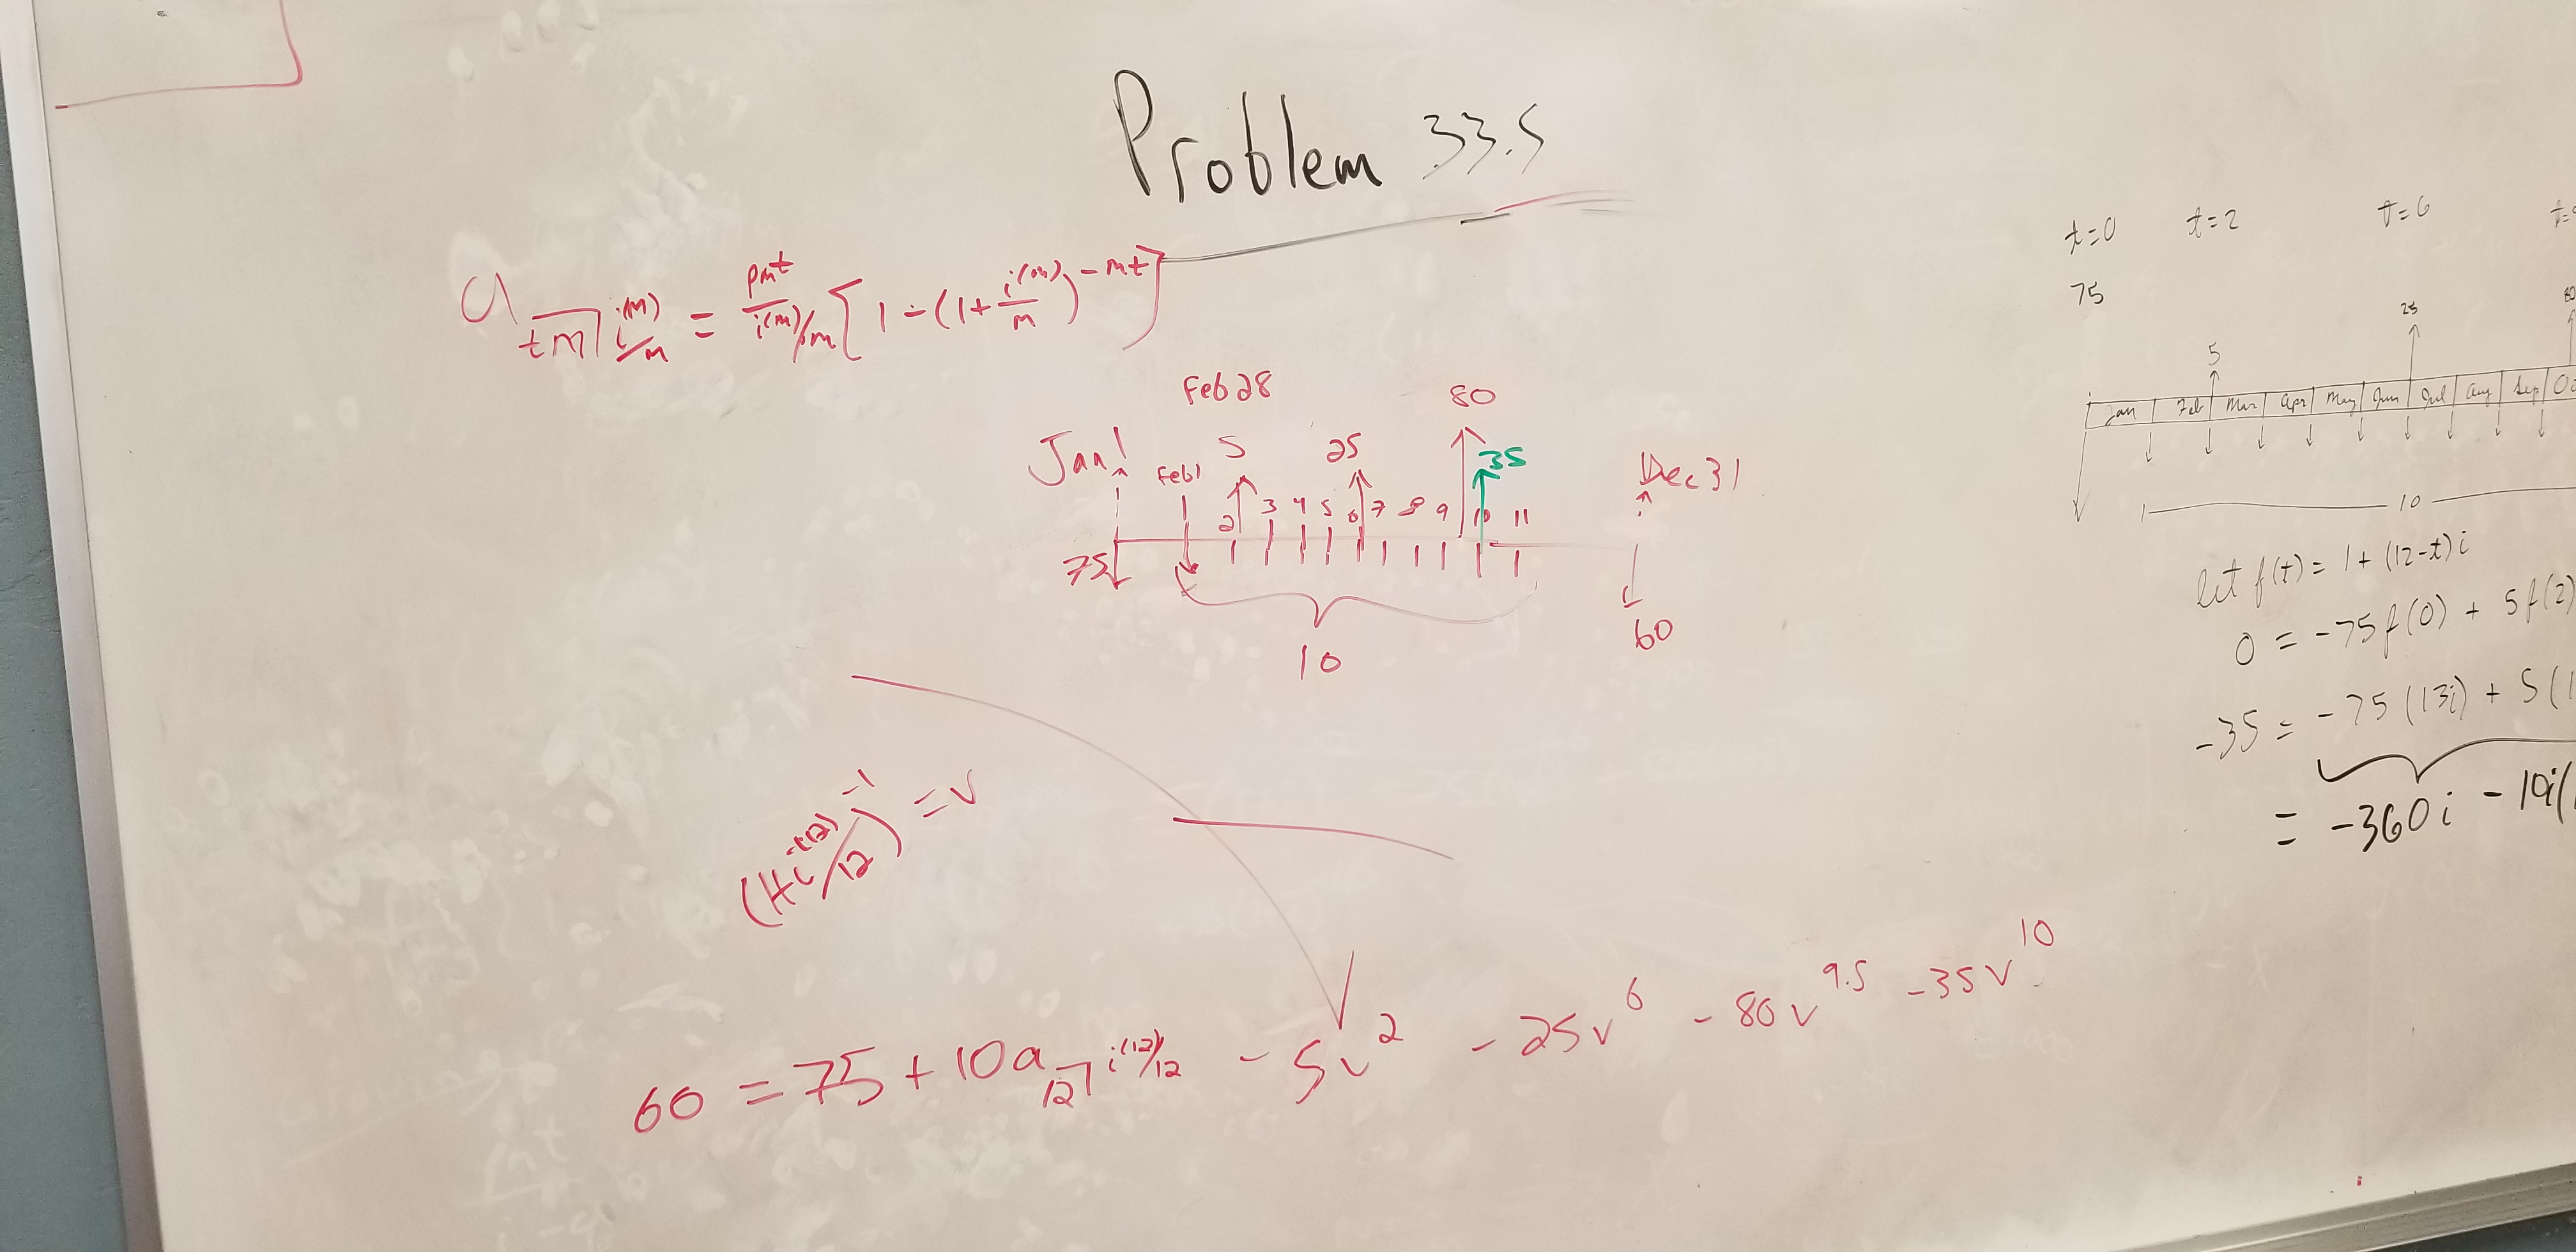 Problem 33.5
a tm| i(m)/m = pmt / i(m)/m [ 1 - (1 + i(m)/m)^-mt ]
Feb 28
80
Jan 1
Feb 1
5
25
35
Dec 31
2 3 4 5 6 7 8 9 10 11
75
10
60
(1+i(12)/12)^-1 = v
60 = 75 + 10a 12| i(12)/12 - 5v^2 - 25v^6 - 80v^9.5 - 35v^10
t=0 t=2 t=6
75
5
25
Jan Feb Mar Apr May Jun Jul Aug Sep
10
let f(t) = 1 + (12-t)i
0 = -75f(0) + 5f(2)
-35 = -75(13i) + 5(
= -360i - 10i(